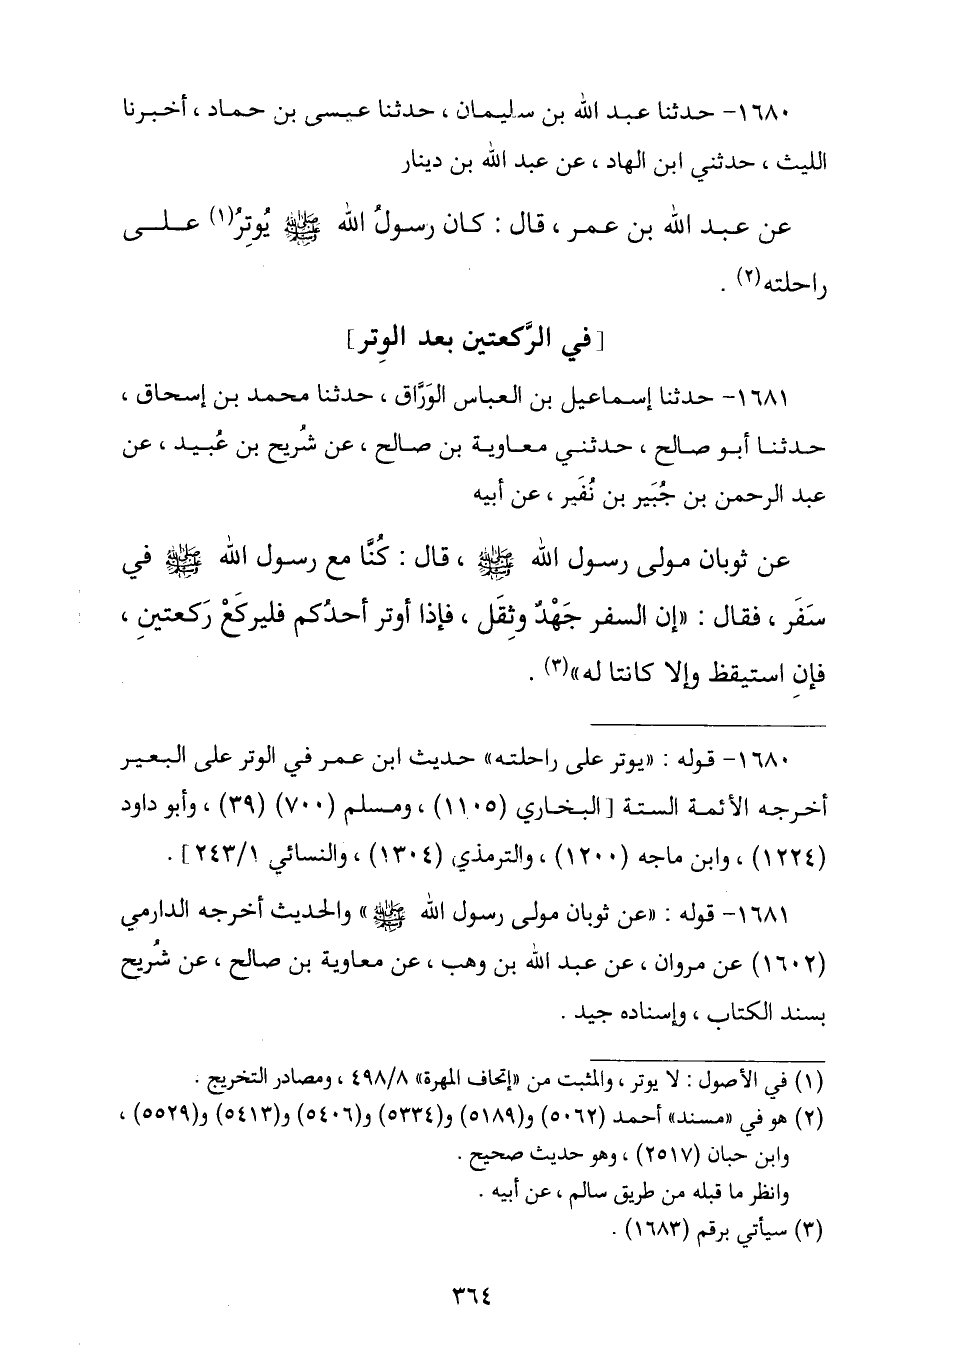 ١٦٨٠- حدثنا عبد الله بن سليمان ، حدثنا عيسى بن حماد ، أخبرنا
الليث ، حدثني ابن الهاد ، عن عبد الله بن دينار
عن عبد الله بن عمر ، قال : كان رسولُ الله ﷺ يُوتِرُ(١) على
راحلته(٢) .
[في الرَّكعتين بعد الوِتر]
١٦٨١- حدثنا إسماعيل بن العباس الوَرَّاق ، حدثنا محمد بن إسحاق ،
حدثنا أبو صالح ، حدثني معاوية بن صالح ، عن شُريح بن عُبيد ، عن
عبد الرحمن بن جُبَير بن نُفَير ، عن أبيه
عن ثوبان مولى رسول الله ﷺ ، قال : كُنَّا مع رسول الله ﷺ في
سَفَر ، فقال : «إن السفر جَهْدٌ وثِقَل ، فإذا أوتر أحدُكم فليركَعْ رَكعتينِ ،
فإنِ استيقظ وإلا كانتا له»(٣) .
١٦٨٠- قوله : «يوتر على راحلته» حديث ابن عمر في الوتر على البعير
أخرجه الأئمة الستة [البخاري (١١٠٥) ، ومسلم (٧٠٠) (٣٩) ، وأبو داود
(١٢٢٤) ، وابن ماجه (١٢٠٠) ، والترمذي (١٣٠٤) ، والنسائي ٢٤٣/١] .
١٦٨١- قوله : «عن ثوبان مولى رسول الله ﷺ» والحديث أخرجه الدارمي
(١٦٠٢) عن مروان ، عن عبد الله بن وهب ، عن معاوية بن صالح ، عن شُريح
بسند الكتاب ، وإسناده جيد .
(١) في الأصول : لا يوتر ، والمثبت من «إتحاف المهرة» ٤٩٨/٨ ، ومصادر التخريج .
(٢) هو في «مسند» أحمد (٥٠٦٢) و(٥١٨٩) و(٥٣٣٤) و(٥٤٠٦) و(٥٤١٣) و(٥٥٢٩) ،
وابن حبان (٢٥١٧) ، وهو حديث صحيح .
وانظر ما قبله من طريق سالم ، عن أبيه .
(٣) سيأتي برقم (١٦٨٣) .
٣٦٤